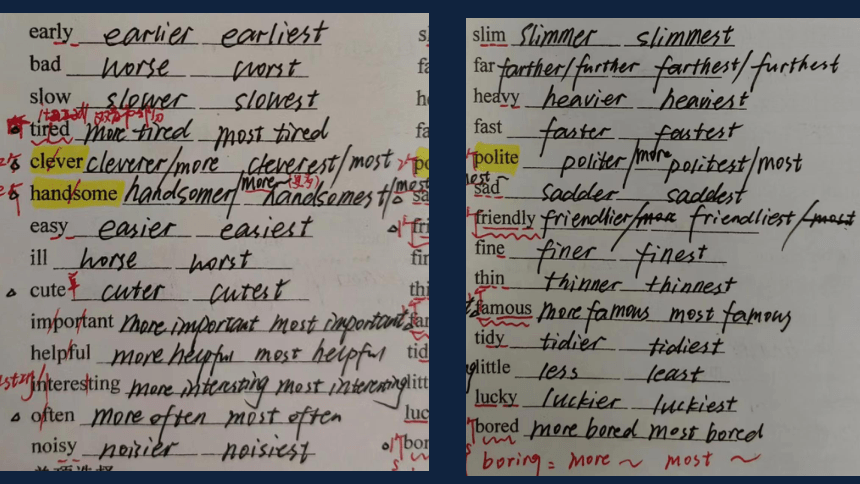 early earlier earliest
bad worse worst
slow slower slowest
tired more tired most tired
clever cleverer/more cleverest/most
handsome handsomer/more handsomest/most
easy easier easiest
ill worse worst
cute cuter cutest
important more important most important
helpful more helpful most helpful
interesting more interesting most interesting
often more often most often
noisy noisier noisiest
slim slimmer slimmest
far farther/further farthest/furthest
heavy heavier heaviest
fast faster fastest
polite politer/more politest/most
sad sadder saddest
friendly friendlier/more friendliest/most
fine finer finest
thin thinner thinnest
famous more famous most famous
tidy tidier tidiest
little less least
lucky luckier luckiest
bored more bored most bored
boring = more ~ most ~